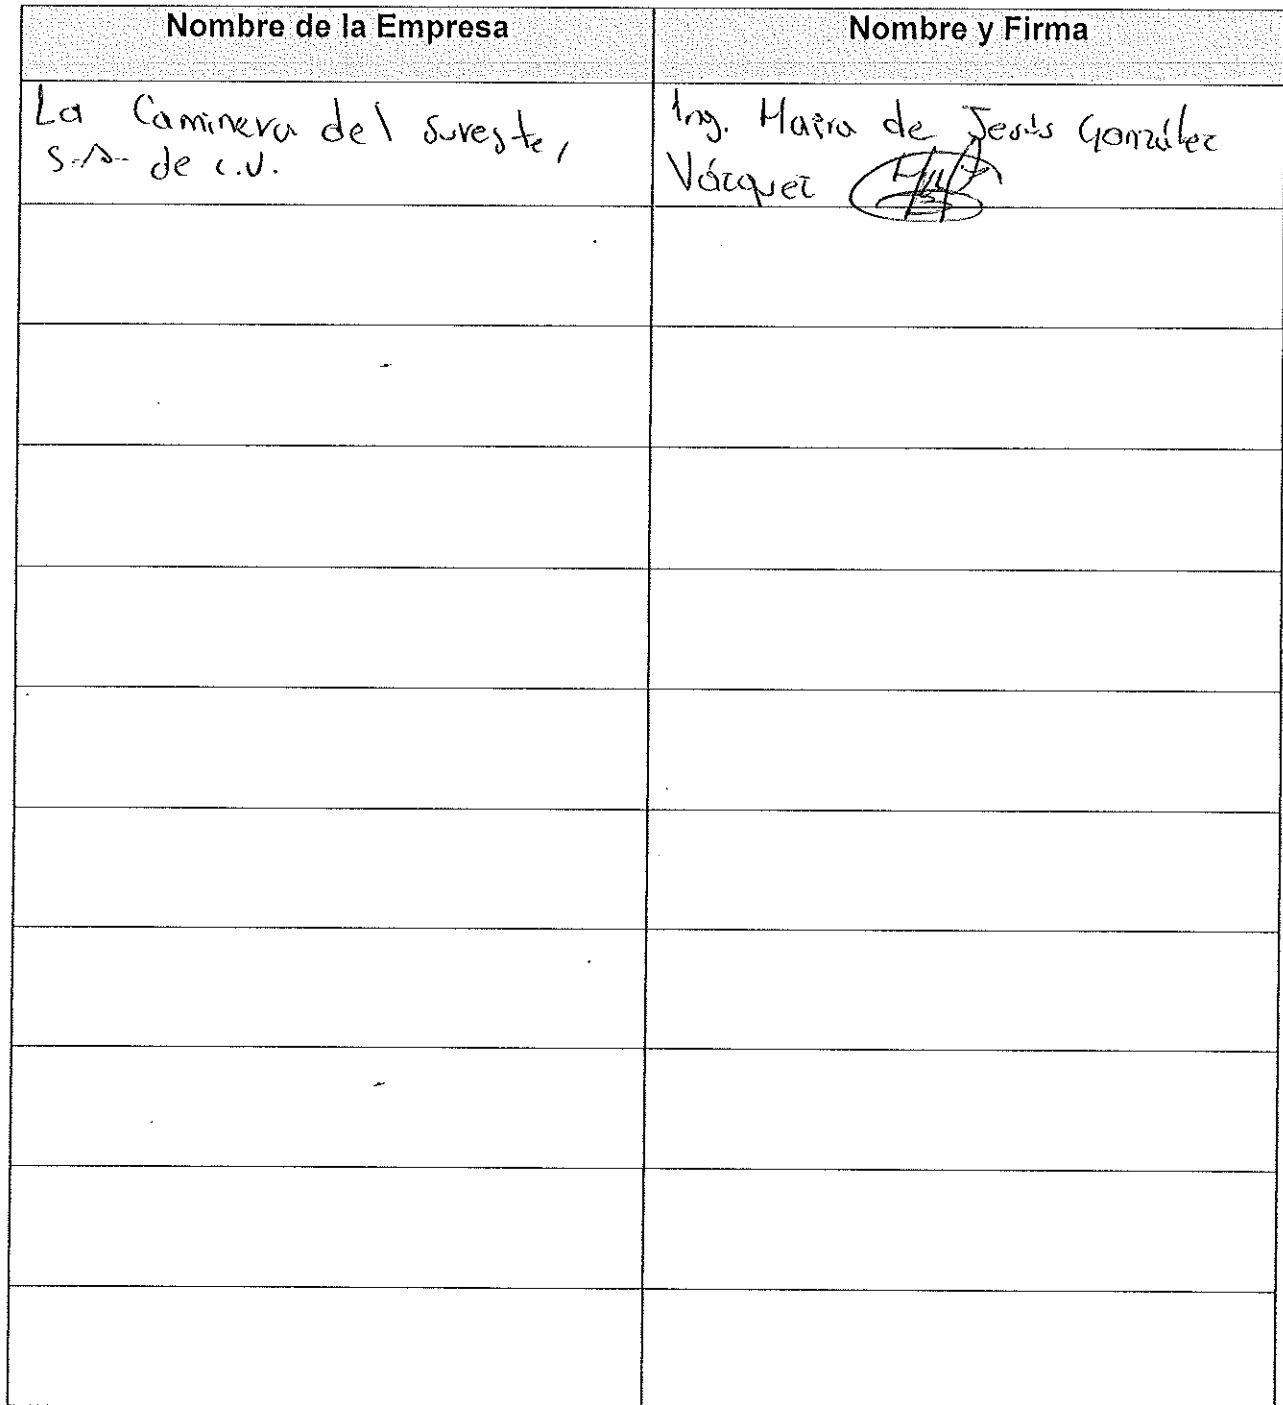 Nombre de la Empresa
Nombre y Firma
La Caminera del Sureste,
S.A. de C.V.
Ing. Maira de Jesús González
Vázquez